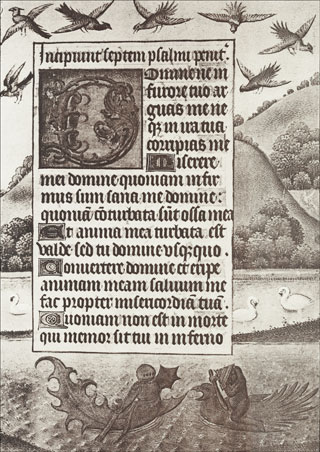 Incipiunt septem psalmi penit.
Domine ne in
furore tuo ar
guas me ne
q3 in ira tua
corripias me
Miserere
mei domine quoniam infir
mus sum sana me domine:
quoniā cōturbata sūt ossa mea
Et anima mea turbata est
valde sed tu domine vsq3quo.
Conuertere domine et eripe
animam meam saluum me
fac propter misericordiam tuā.
Quoniam non est in morte
qui memor sit tui in inferno